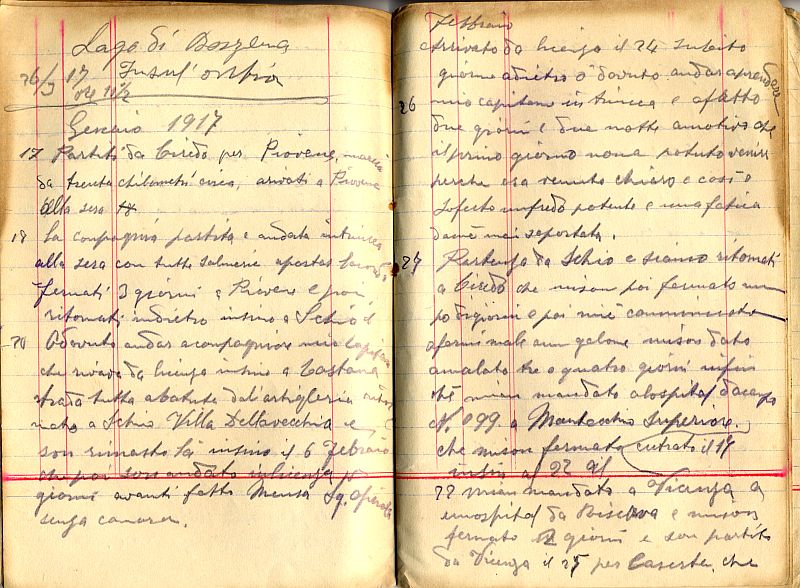 Lago di
26/3 17 Insul
ore 11 1/2
Gennaio 1917
17 Partiti da Credo per Piovene, marcia
da trenta chilometri circa, arrivati a Piovene
alla sera
18 La compagnia partita e andata in trincea
alla sera con tutte salmerie
fermati 3 giorni a Piovene e poi
ritornati indietro insino a Schio
20 O dovuto andar acompagniare mio capitano
che rivava da licenza insino a
strada tutta abatuta dal'artiglieria
a Schio Villa Dellavecchia e
son rimasto là insino il 6 Febraio
che poi son andato in licenza
giorni avanti fatto Mensa Sq. Operata
senza
Febbraio
Arrivato da licenza il 24 subito
giorno adietro o dovuto andar a prendere
26 mio capitano in trincea e o fatto
due giorni e due notti a motivo che
il primo giorno non a potuto venire
perche era venuto chiaro e cosi o
soferto un fredo potente e una fatica
da me mai soportata.
27 Partenza da Schio e siamo ritornati
a Credo che mi son poi fermato un
po di giorni e poi mi è
a fermi male a un galone mi son dato
amalato tre o quatro giorni infin
che mian mandato a lospital da campo
N. 099 a Montecchio Superiore.
che mi son fermato entrato il 17
insin al 22 al
22 mian mandato a Vicenza a
un ospital da Riserva e mi son
fermato 2 giorni e son partito
da Vicenza il 25 per Caserta, che